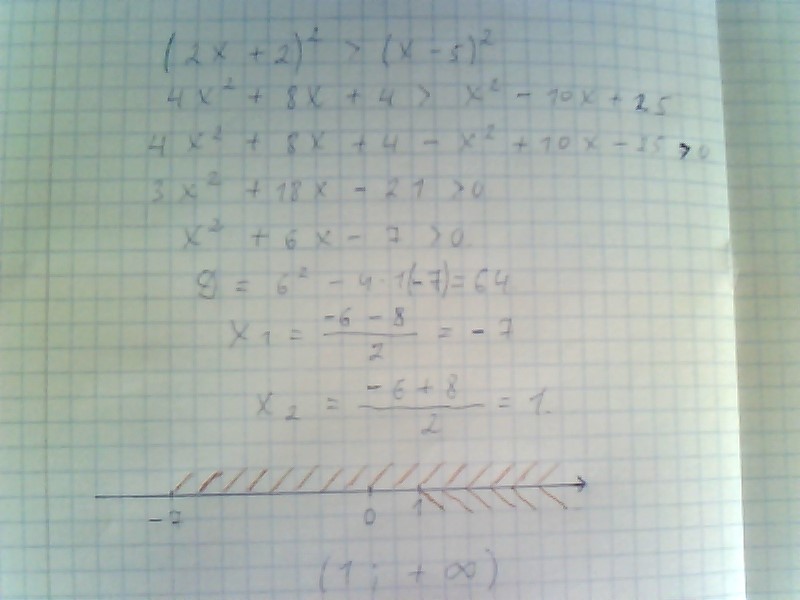 (2x + 2)² > (x - 5)²
4x² + 8x + 4 > x² - 10x + 25
4x² + 8x + 4 - x² + 10x - 25 > 0
3x² + 18x - 21 > 0
x² + 6x - 7 > 0
D = 6² - 4·1(-7) = 64
x₁ = (-6 - 8)/2 = -7
x₂ = (-6 + 8)/2 = 1.
-7 0 1
(1; +∞)